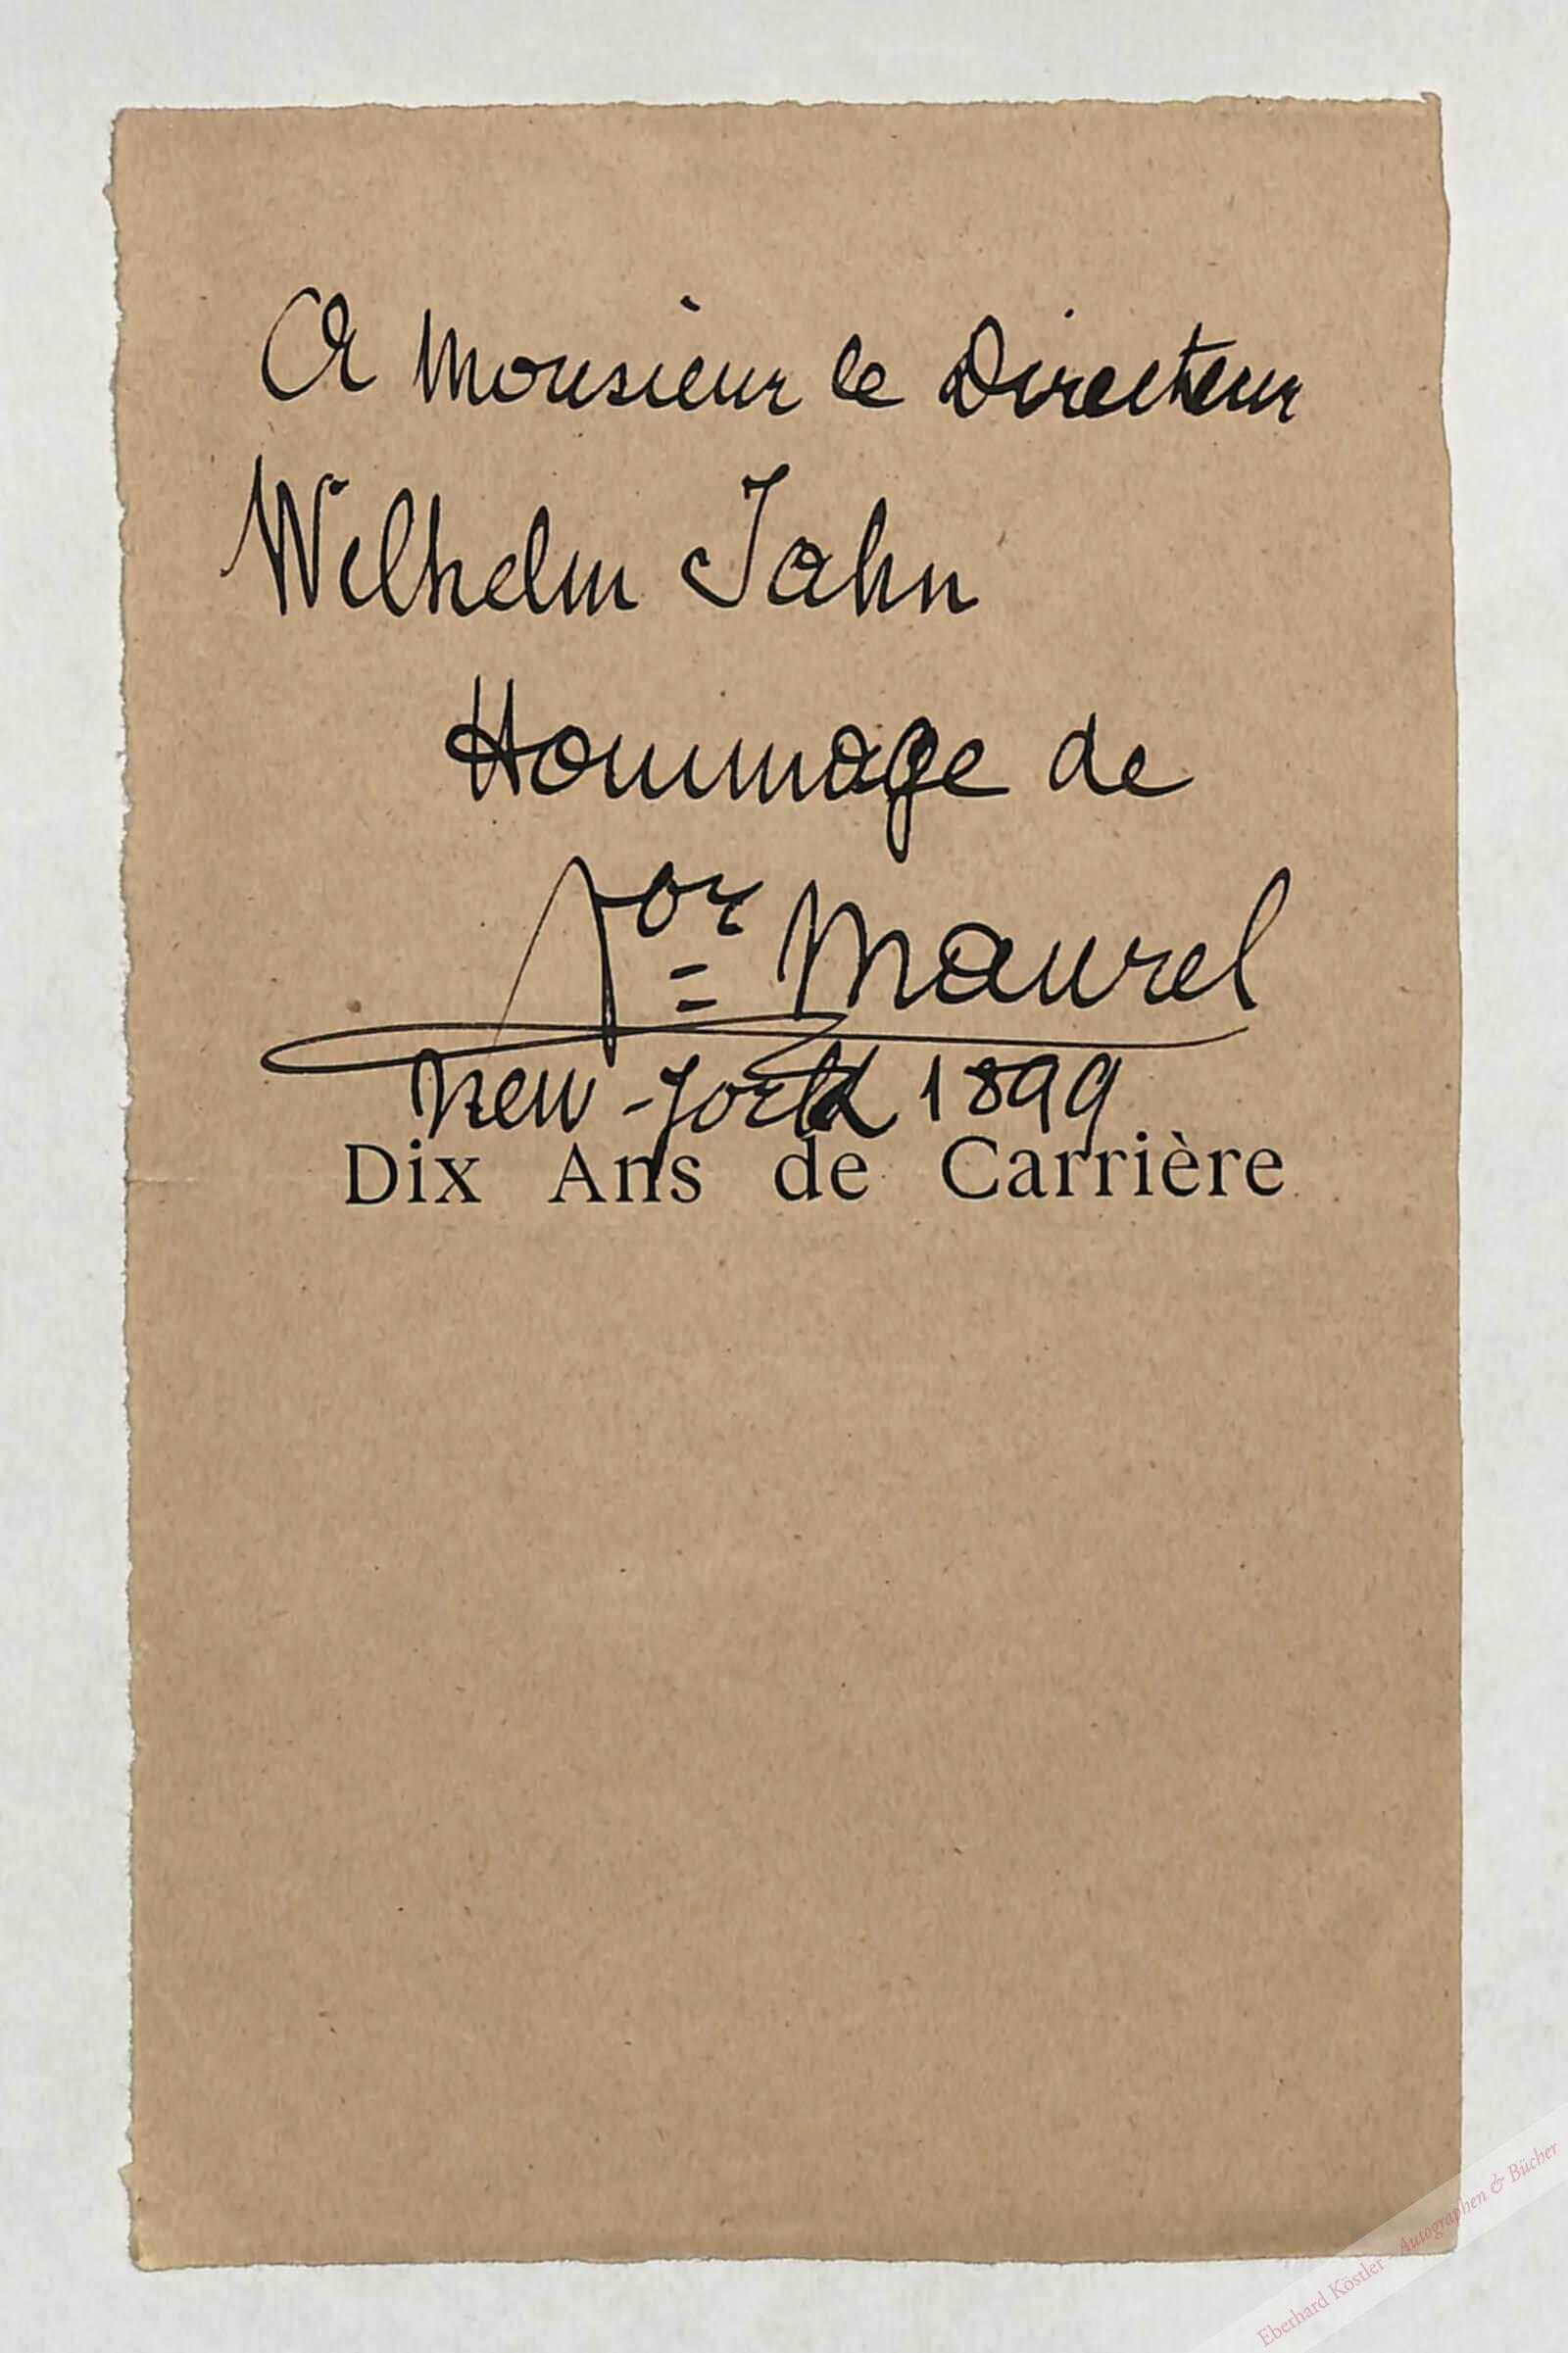 A Monsieur le Directeur
Wilhelm Jahn
Hommage de
Vor= Maurel
New-York 1899
Dix Ans de Carrière
Eberhard Köstler - Autographen & Bücher